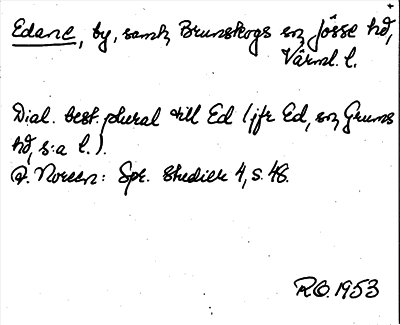 Edane, by, samh Brunskogs sn, Jösse hd,
Värml. l.
Dial. best. plural till Ed (jfr Ed, sn, Grums
hd, s:a l.).
A. Noreen: Spr. studier 4, s. 48.
R.O. 1953